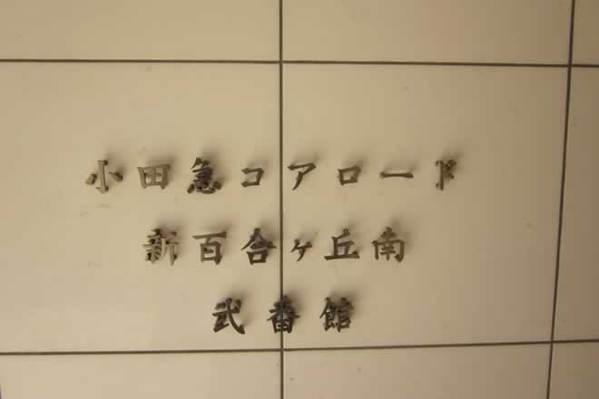 小田急コアロード
新百合ヶ丘南
弐番館